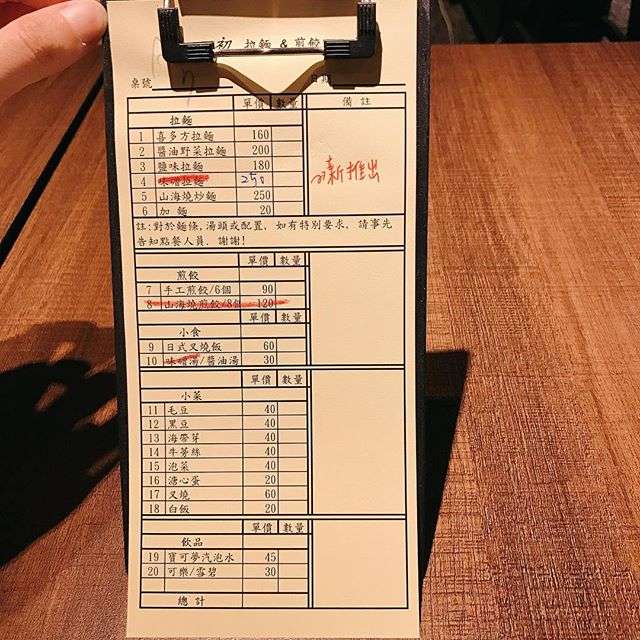 初 拉麵 & 煎餃
桌號
單價 數量 備註
拉麵
1 喜多方拉麵 160
2 醬油野菜拉麵 200
3 鹽味拉麵 180
4 味噌拉麵 250 新推出
5 山海燒炒麵 250
6 加 麵 20
註:對於麵條,湯頭或配置, 如有特別要求, 請事先
告知點餐人員. 謝謝!
單價 數量
煎餃
7 手工煎餃/6個 90
8 山海燒煎餃/8個 120
單價 數量
小食
9 日式叉燒飯 60
10 味噌湯/醬油湯 30
單價 數量
小菜
11 毛豆 40
12 黑豆 40
13 海帶芽 40
14 牛蒡絲 40
15 泡菜 40
16 溏心蛋 20
17 叉燒 60
18 白飯 20
單價 數量
飲品
19 寶可夢汽泡水 45
20 可樂/雪碧 30
總計